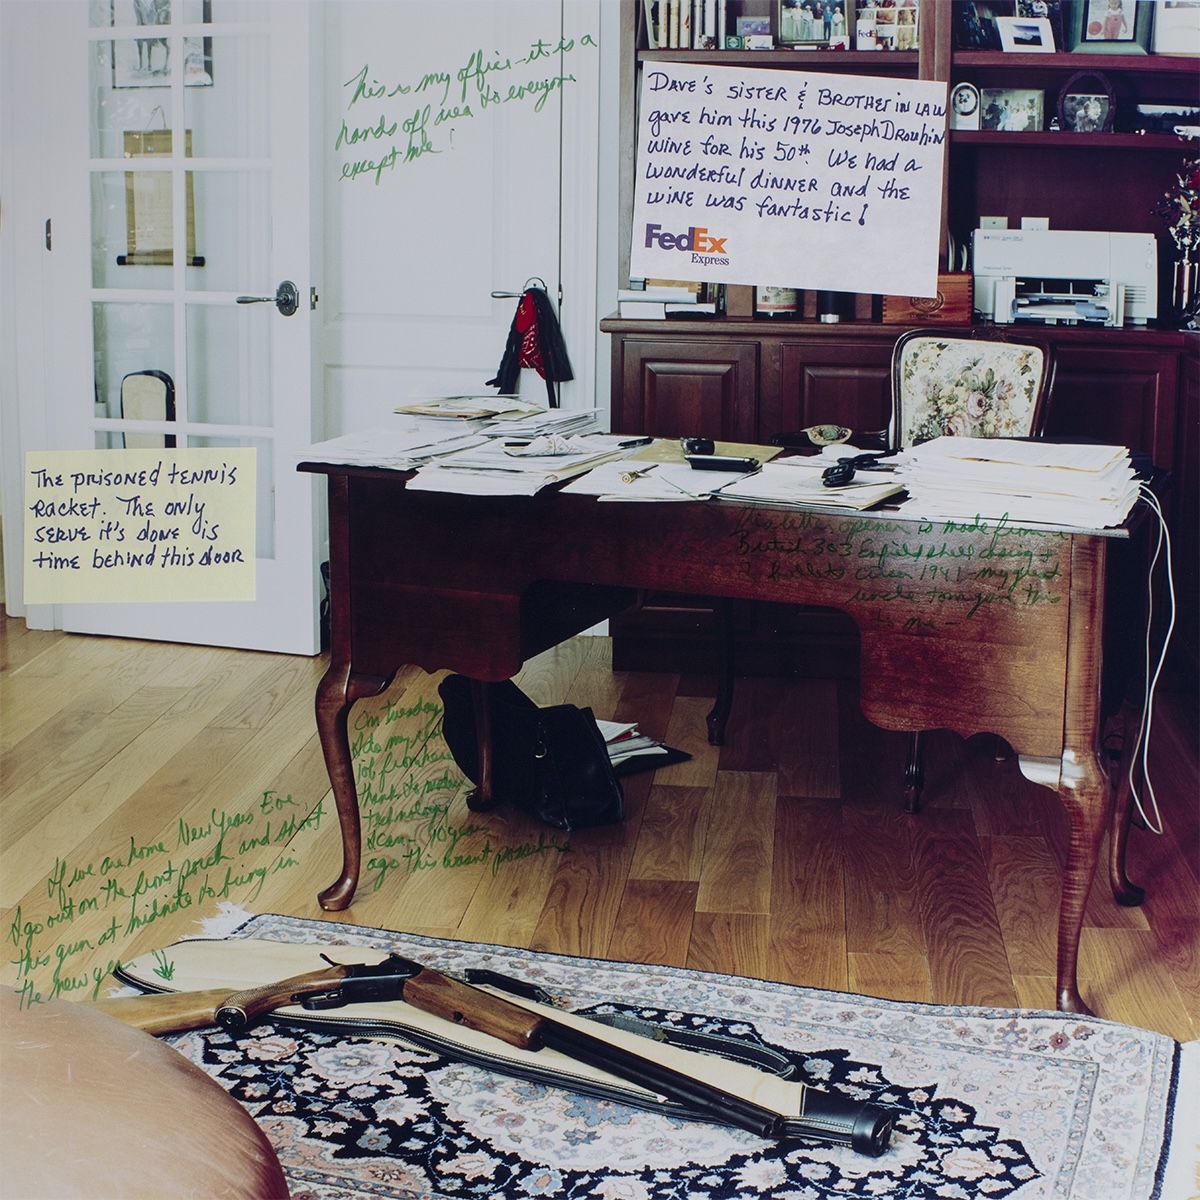 This is my office - it is a
hands off area to everyone
except me!
DAVE'S SISTER & BROTHER IN LAW
gave him this 1976 Joseph Drouhin
WINE for his 50th. We had a
wonderful dinner and the
wine was fantastic!
FedEx
Express
The prisoned tennis
Racket. The only
serve it's done is
time behind this door
This letter opener is made from a
British 303 Enfield shell casing +
2 bullets circa 1941 - my great
uncle Tom gave this
to me -
On Tuesday
I do my real
job from here
thanks to modern
technology
I can - 90 years
ago this wasnt possible
If we are home New Years Eve,
I go out on the front porch and shoot
this gun at midnite to bring in
the new year